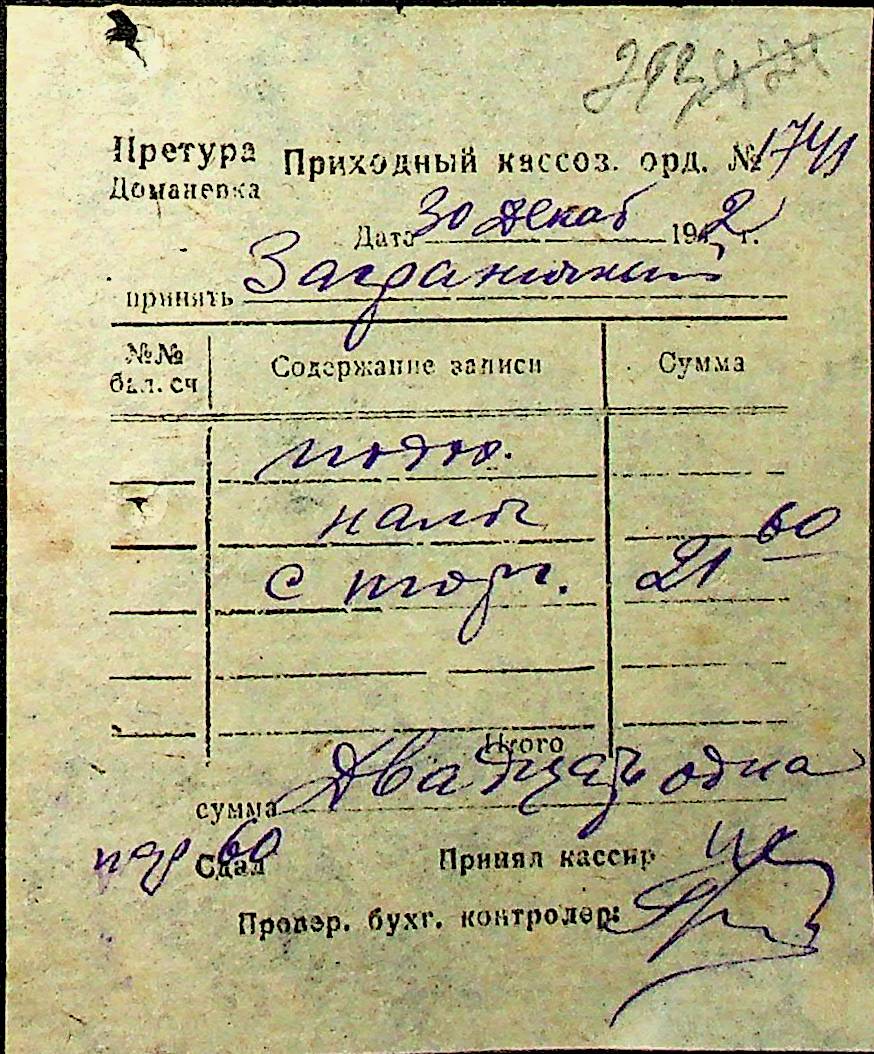 Претура Приходный кассоз. орд. № 1741
Доманевка
Дата 30 декаб 1942 г.
принять Заграничный
№№ бал. сч Содержание записи Сумма
подох.
налог
с торг. 21 60
Итого
сумма Двадцать одна
60 Сдал Принял кассир
Провер. бухг. контролер: